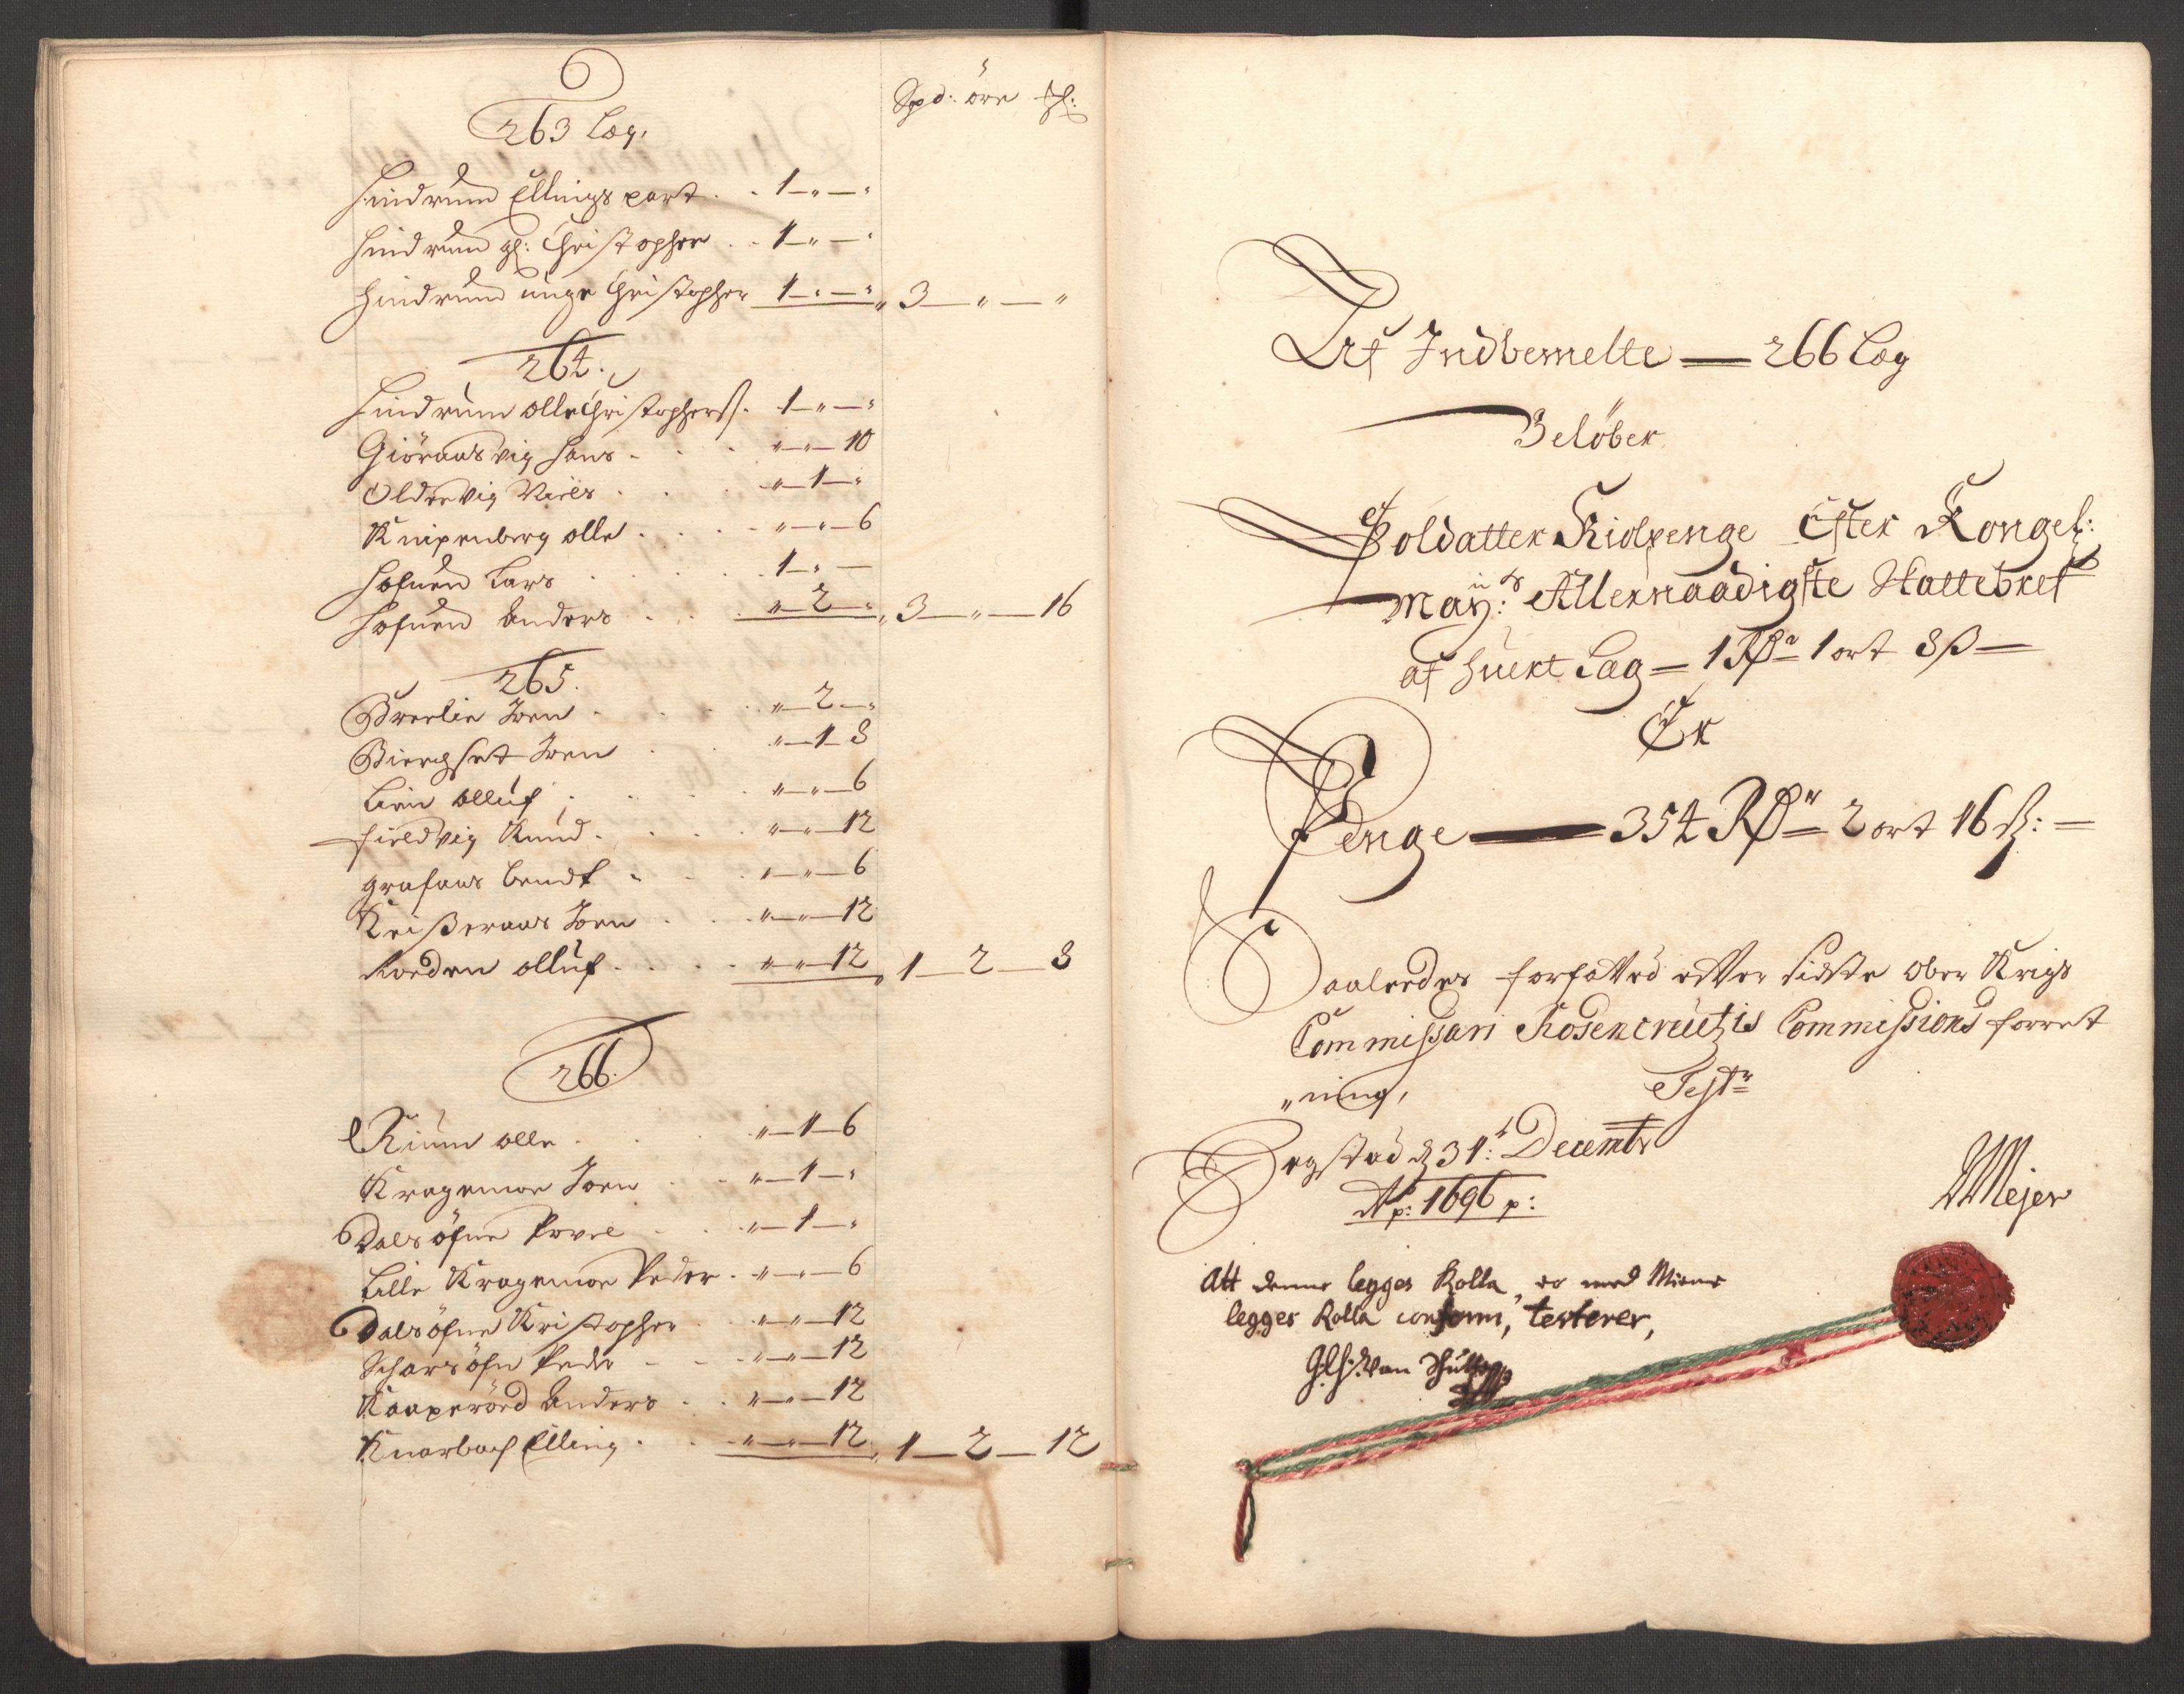 Spd: öre ß:
263 Læg,
Hindrum Ellings part . . 1 — " — "
Hindrum gl: Christopher . . 1 — " — "
Hindrum unge Christopher 1 — " — " " 3 — " — "
264.
Hindrum Olle Christopherß. 1 — " — "
Giöraasvig Hans . . . " — " — 10
Oldervig Niels . . . " — 1 — "
Knipenberg olle . . . " — " — 6
Hofuen Lars . . . . 1 — " —
Hofuen Anders . . . " — 2 — " " 3 — " — 16
265.
Brerlie Joen . . . " — 2 — "
Biergset Joen . . " — 1 — 8
Lien olluf . . . " — " — 6
Fieldvig Knud . . . " — " — 12
Grafaas Bendt . . . " — " — 6
Keißeraas Joen . . " — " — 12
Norden olluf . . . . " — " — 12 " 1 — 2 — 8
266.
Rium olle . . . " — 1 — 6
Kragemoe Joen . . " — 1 — "
Dalsöfne Povel . . " — 1 — "
Lille Kragemoe Peder . " — " — 6
Dalsöfne Kristopher . " — " — 12
Scharsöfn Peder . . . " — " — 12
Kaaperöed Anders . . " — " — 12
Knarbach Elling . . " — " — 12 " 1 — 2 — 12
Af Indbemelte — 266 Læg
Belöber
Soldatter Kiolpenge Efter Kongel:
May:ts Allernaadigste Skattebref
af huert Læg — 1 Rdr 1 ort 8 ß —
Er
Penge — 354 Rdr 2 ort 16 ß: —
Saaledes forfatted etter sidste Ober Krigs
Commissari Rosencreutzis Commissions forret
"ning, Testr
Bogstad d 31t: Decembr
Ao: 1696 p:
Mejer
Att denne legges Rolla, er med Miene
legges Rolla conform, testerer,
G: H: von Schult